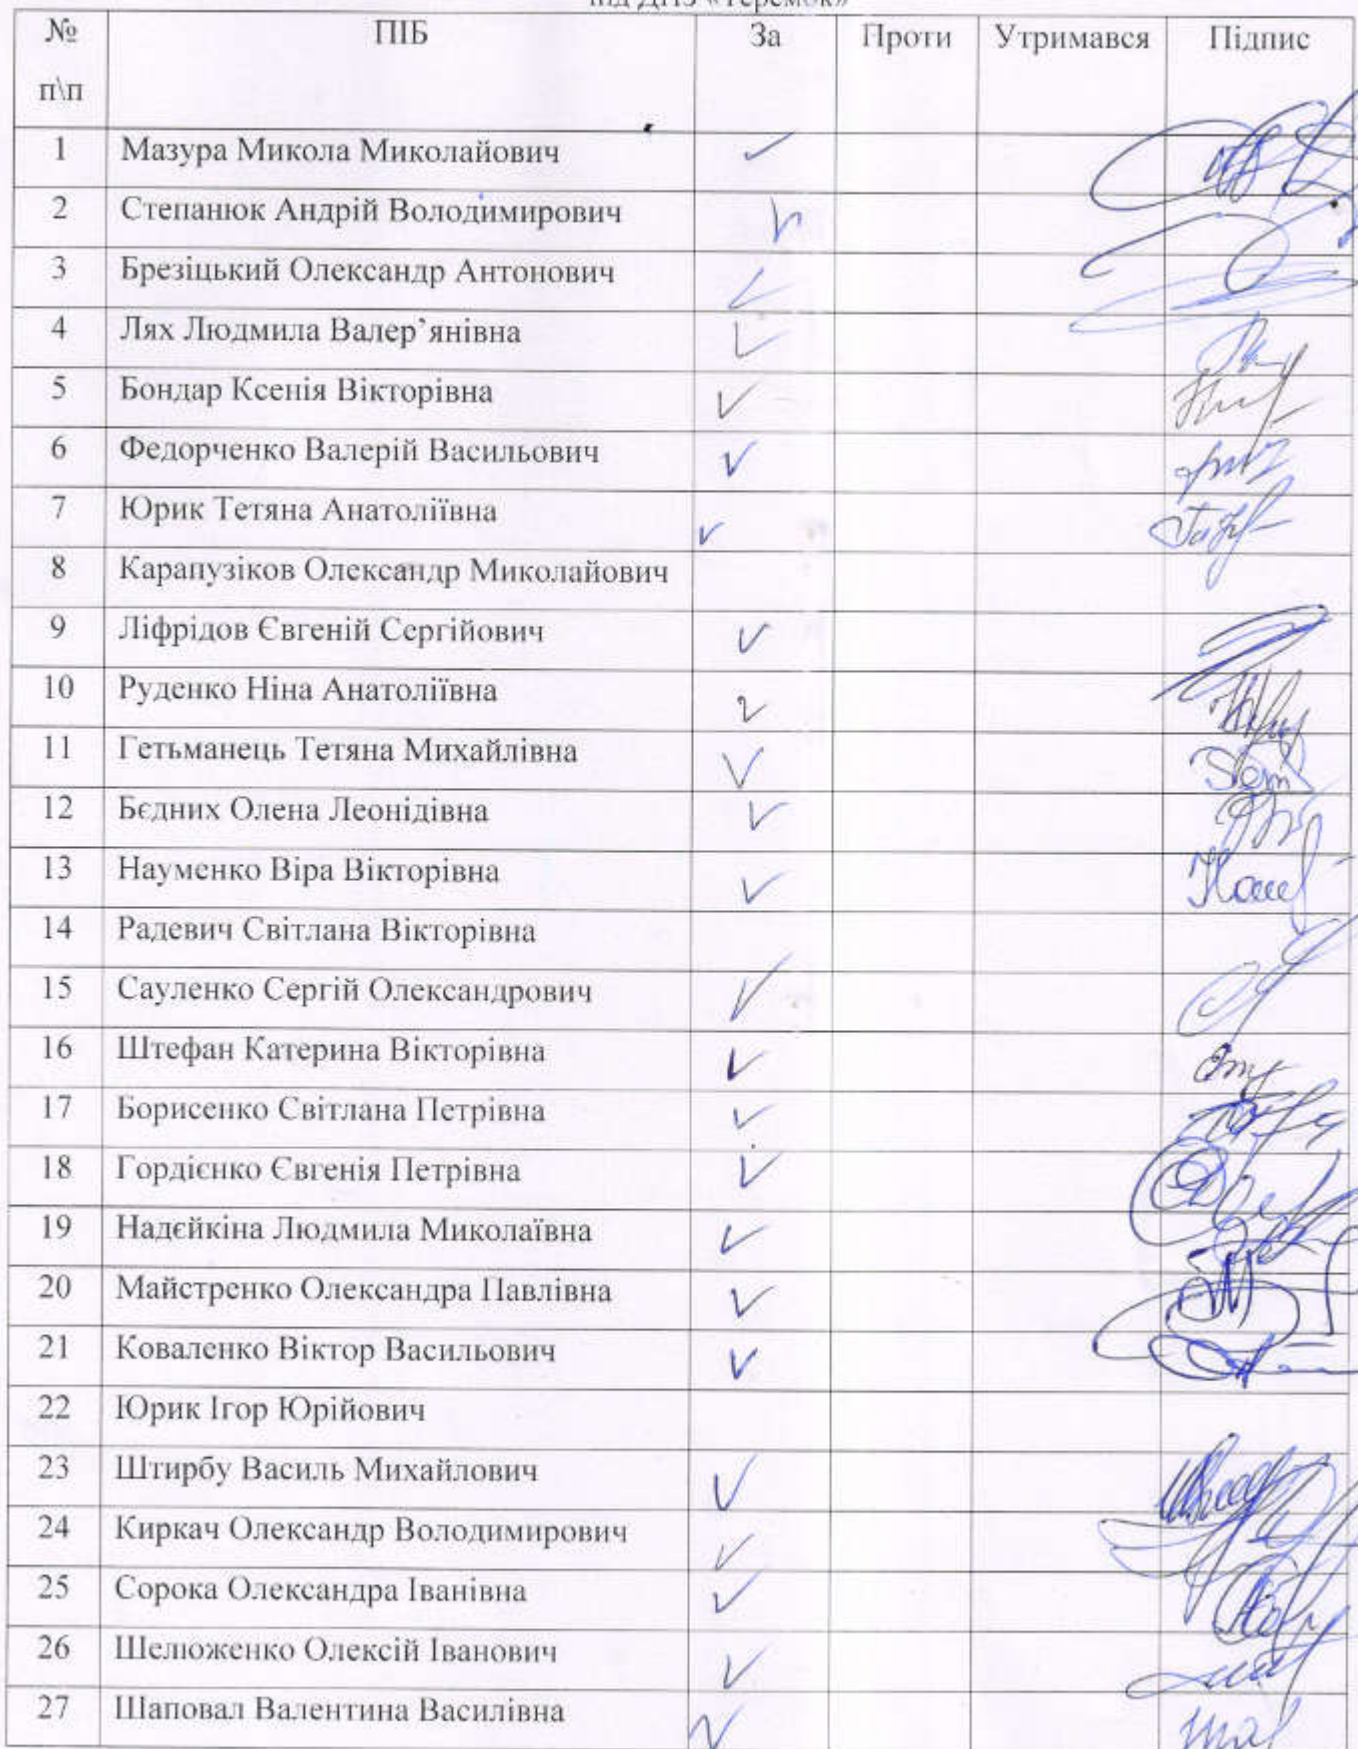 під ДНЗ «Теремок»
№ п\п ПІБ За Проти Утримався Підпис
1 Мазура Микола Миколайович
2 Степанюк Андрій Володимирович
3 Брезіцький Олександр Антонович
4 Лях Людмила Валер’янівна
5 Бондар Ксенія Вікторівна
6 Федорченко Валерій Васильович
7 Юрик Тетяна Анатоліївна
8 Карапузіков Олександр Миколайович
9 Ліфрідов Євгеній Сергійович
10 Руденко Ніна Анатоліївна
11 Гетьманець Тетяна Михайлівна
12 Бєдних Олена Леонідівна
13 Науменко Віра Вікторівна
14 Радевич Світлана Вікторівна
15 Сауленко Сергій Олександрович
16 Штефан Катерина Вікторівна
17 Борисенко Світлана Петрівна
18 Гордієнко Євгенія Петрівна
19 Надєйкіна Людмила Миколаївна
20 Майстренко Олександра Павлівна
21 Коваленко Віктор Васильович
22 Юрик Ігор Юрійович
23 Штирбу Василь Михайлович
24 Киркач Олександр Володимирович
25 Сорока Олександра Іванівна
26 Шелюженко Олексій Іванович
27 Шаповал Валентина Василівна